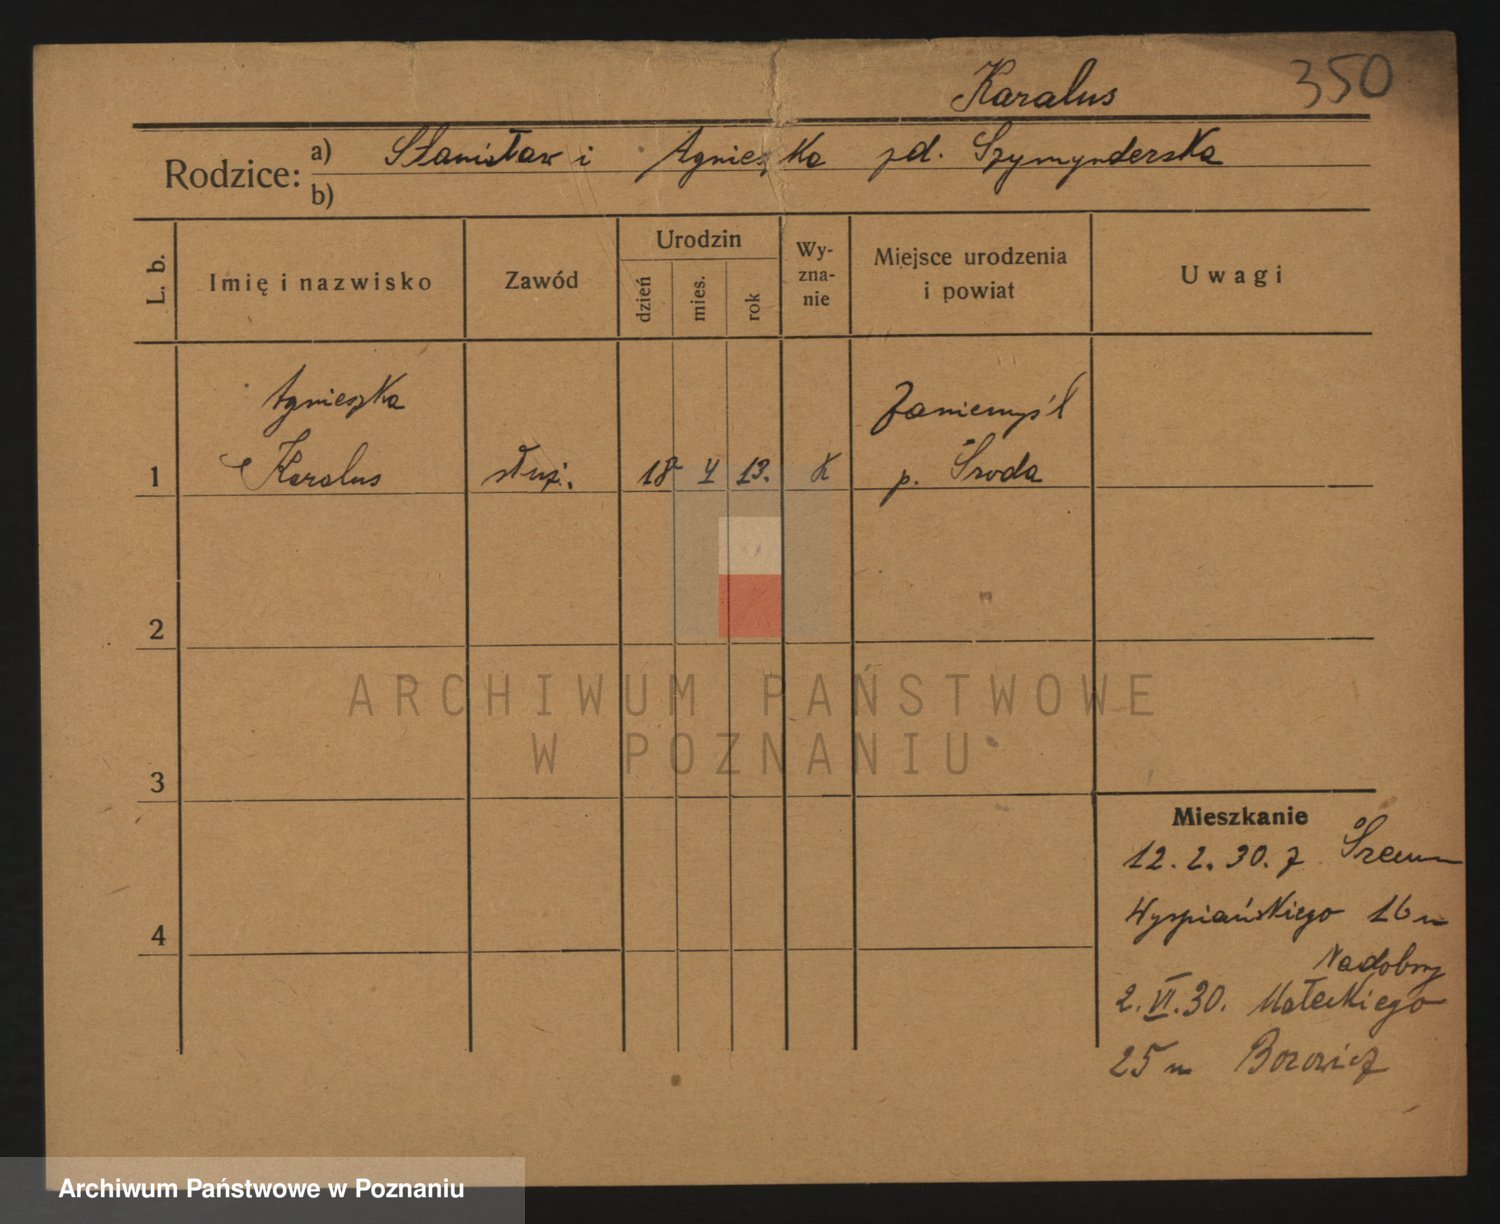 Karalus 350
Rodzice: a) Stanisław i Agnieszka zd. Szymynderska
b)
L. b. Imię i nazwisko Zawód Urodzin dzień mies. rok Wy-zna-nie Miejsce urodzenia i powiat Uwagi
Agnieszka Zaniemyśl
1 Karalus służ. 18 13. K p. Środa
2
ARCHIWUM PAŃSTWOWE
W POZNANIU
3
Mieszkanie
12. 2. 30. z Śrem
4 Wyspiańskiego 16 u
Nadobny
2. VI. 30. Małeckiego
25 u Borowicz
Archiwum Państwowe w Poznaniu